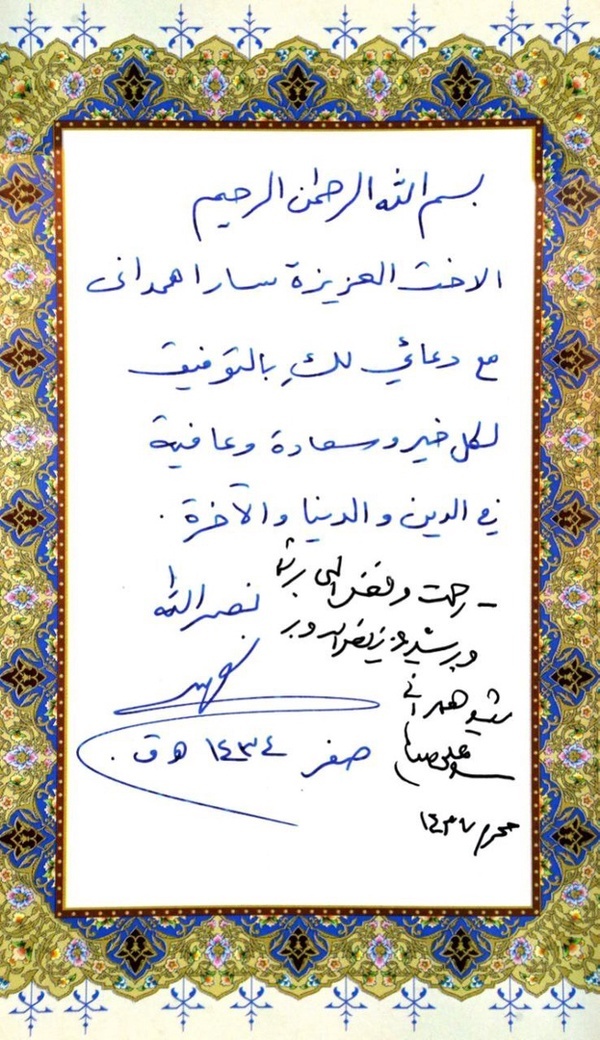 بسم الله الرحمٰن الرحيم
الاخت العزيزة سارا همدانی
مع دعائي لكِ بالتوفيق
لكل خير و سعادة و عافية
في الدين و الدنيا و الآخرة .
نصر الله
صفر ١٤٣٤ هـ ق .
ـ رحمت و فضل الهی بر شما
و بر شهید عزیز نصرالله و بر
شهید همدانی
محرم ١٤٣٧